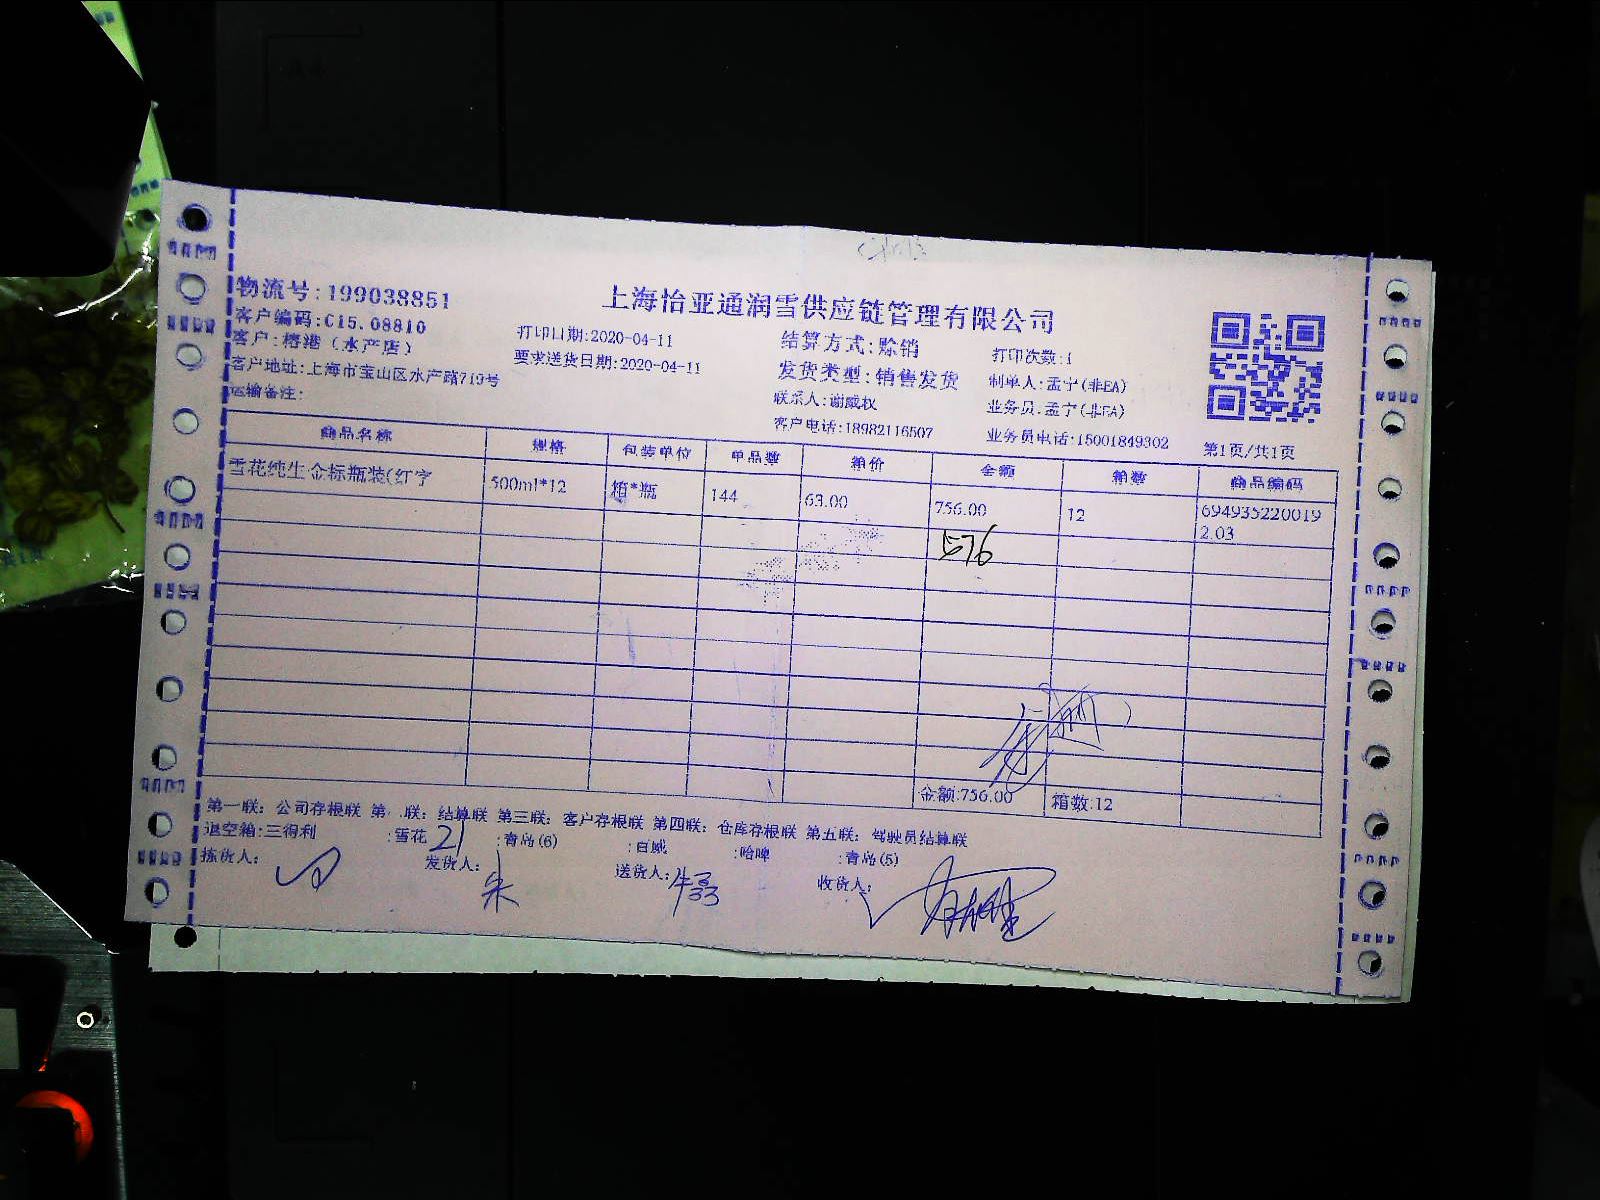 上海怡亚通润雪供应链管理有限公司
物流号:199038851
客户编码:C15.08810
客户:椿港（水产店）
客户地址:上海市宝山区水产路719号
运输备注:
打印日期:2020-04-11
要求送货日期:2020-04-11
结算方式:赊销
发货类型:销售发货
联系人:谢威权
客户电话:18982116507
打印次数:1
制单人:孟宁(非EA)
业务员:孟宁(非EA)
业务员电话:15001849302
第1页/共1页
商品名称 规格 包装单位 单品数 箱价 金额 箱数 商品编码
雪花纯生金标瓶装(红字 500ml*12 箱*瓶 144 63.00 756.00 12 694935220019
2.03
576
金额:756.00 箱数:12
第一联：公司存根联 第 联：结算联 第三联：客户存根联 第四联：仓库存根联 第五联：驾驶员结算联
退空箱:三得利 :雪花 21 :青岛(6) :百威 :哈啤 :青岛(5)
拣货人: 发货人: 朱 送货人: 牛磊 收货人: